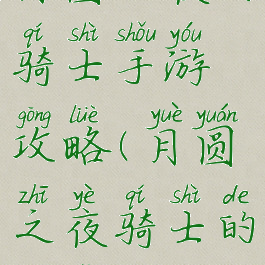 qí shì shǒu yóu
骑士手游
gōng lüè yuè yuán
攻略(月圆
zhī yè qí shì de
之夜骑士的